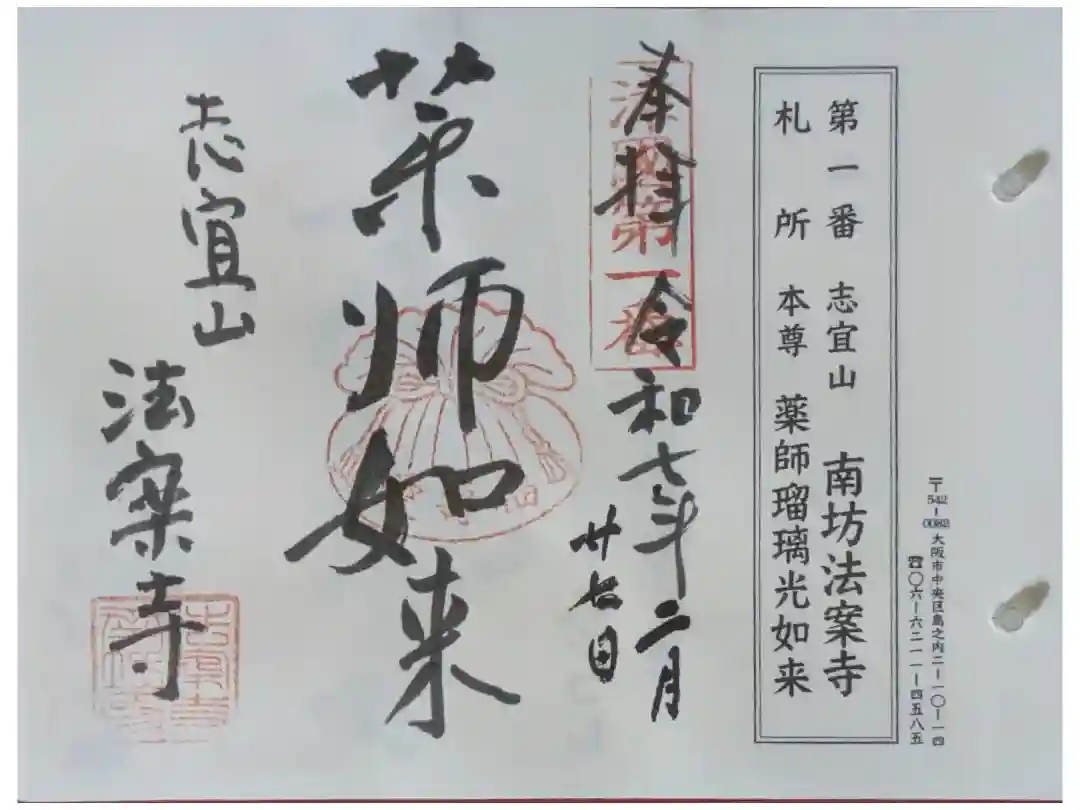 〒542-0082 大阪市中央区島之内二-一〇-一四
☎〇六-六二一一-四五八五
第一番 志宜山 南坊法案寺
札所 本尊 薬師瑠璃光如来
奉拝 令和七年二月
廿七日
第一番
薬師如来
志宜山
法案寺